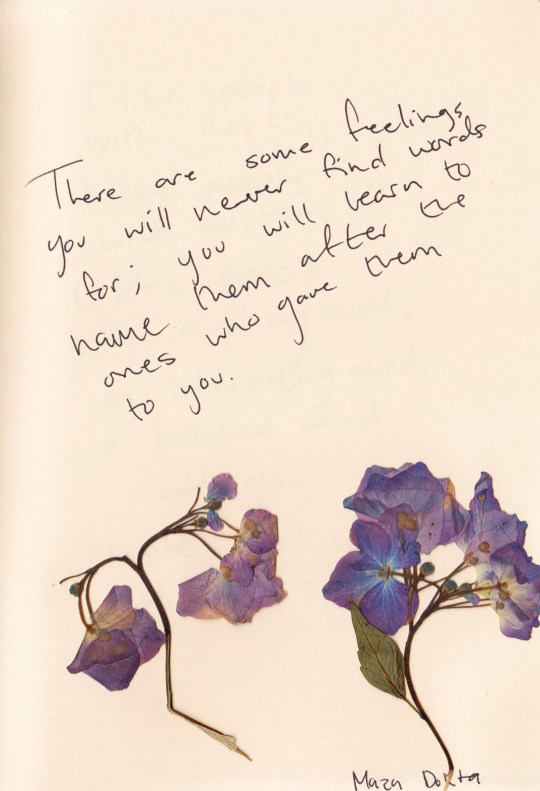 There are some feelings
you will never find words
for; you will learn to
name them after the
ones who gave them
to you.
Maza Dohta